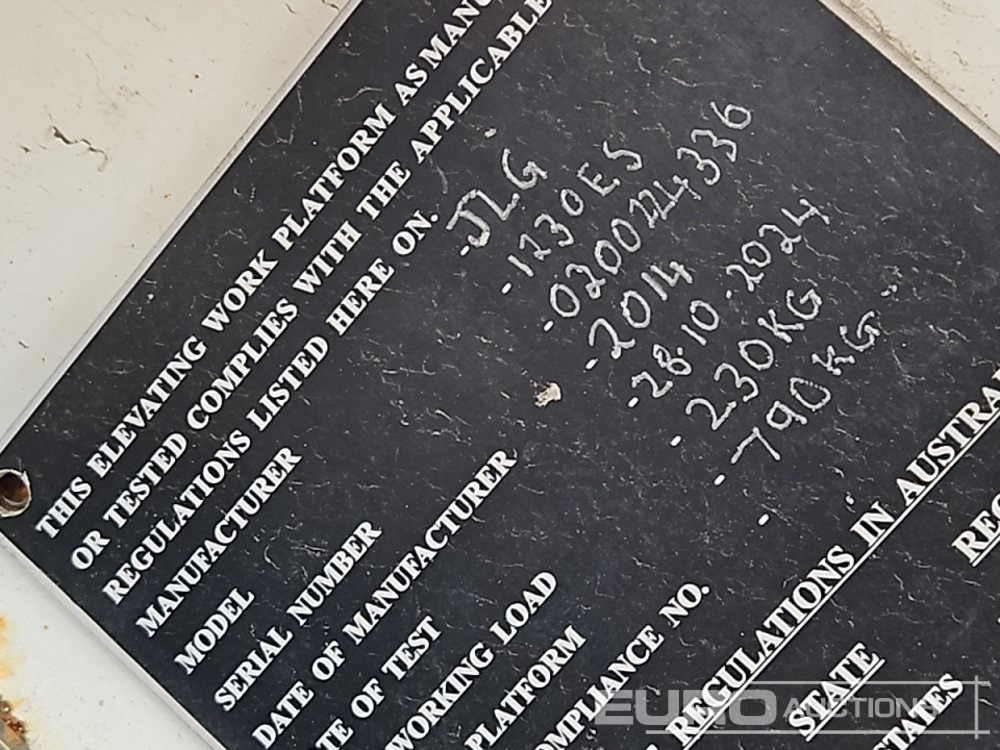 THIS ELEVATING WORK PLATFORM AS
OR TESTED COMPLIES WITH THE APPLICABLE
REGULATIONS LISTED HERE ON.
MANUFACTURER - JLG
MODEL - 1230ES
SERIAL NUMBER - 0200224336
DATE OF MANUFACTURER - 2014
OF TEST - 28.10.2024
WORKING LOAD - 230KG
PLATFORM - 790KG
NO. -
REGULATIONS IN
STATE
EURO AUCTIONS